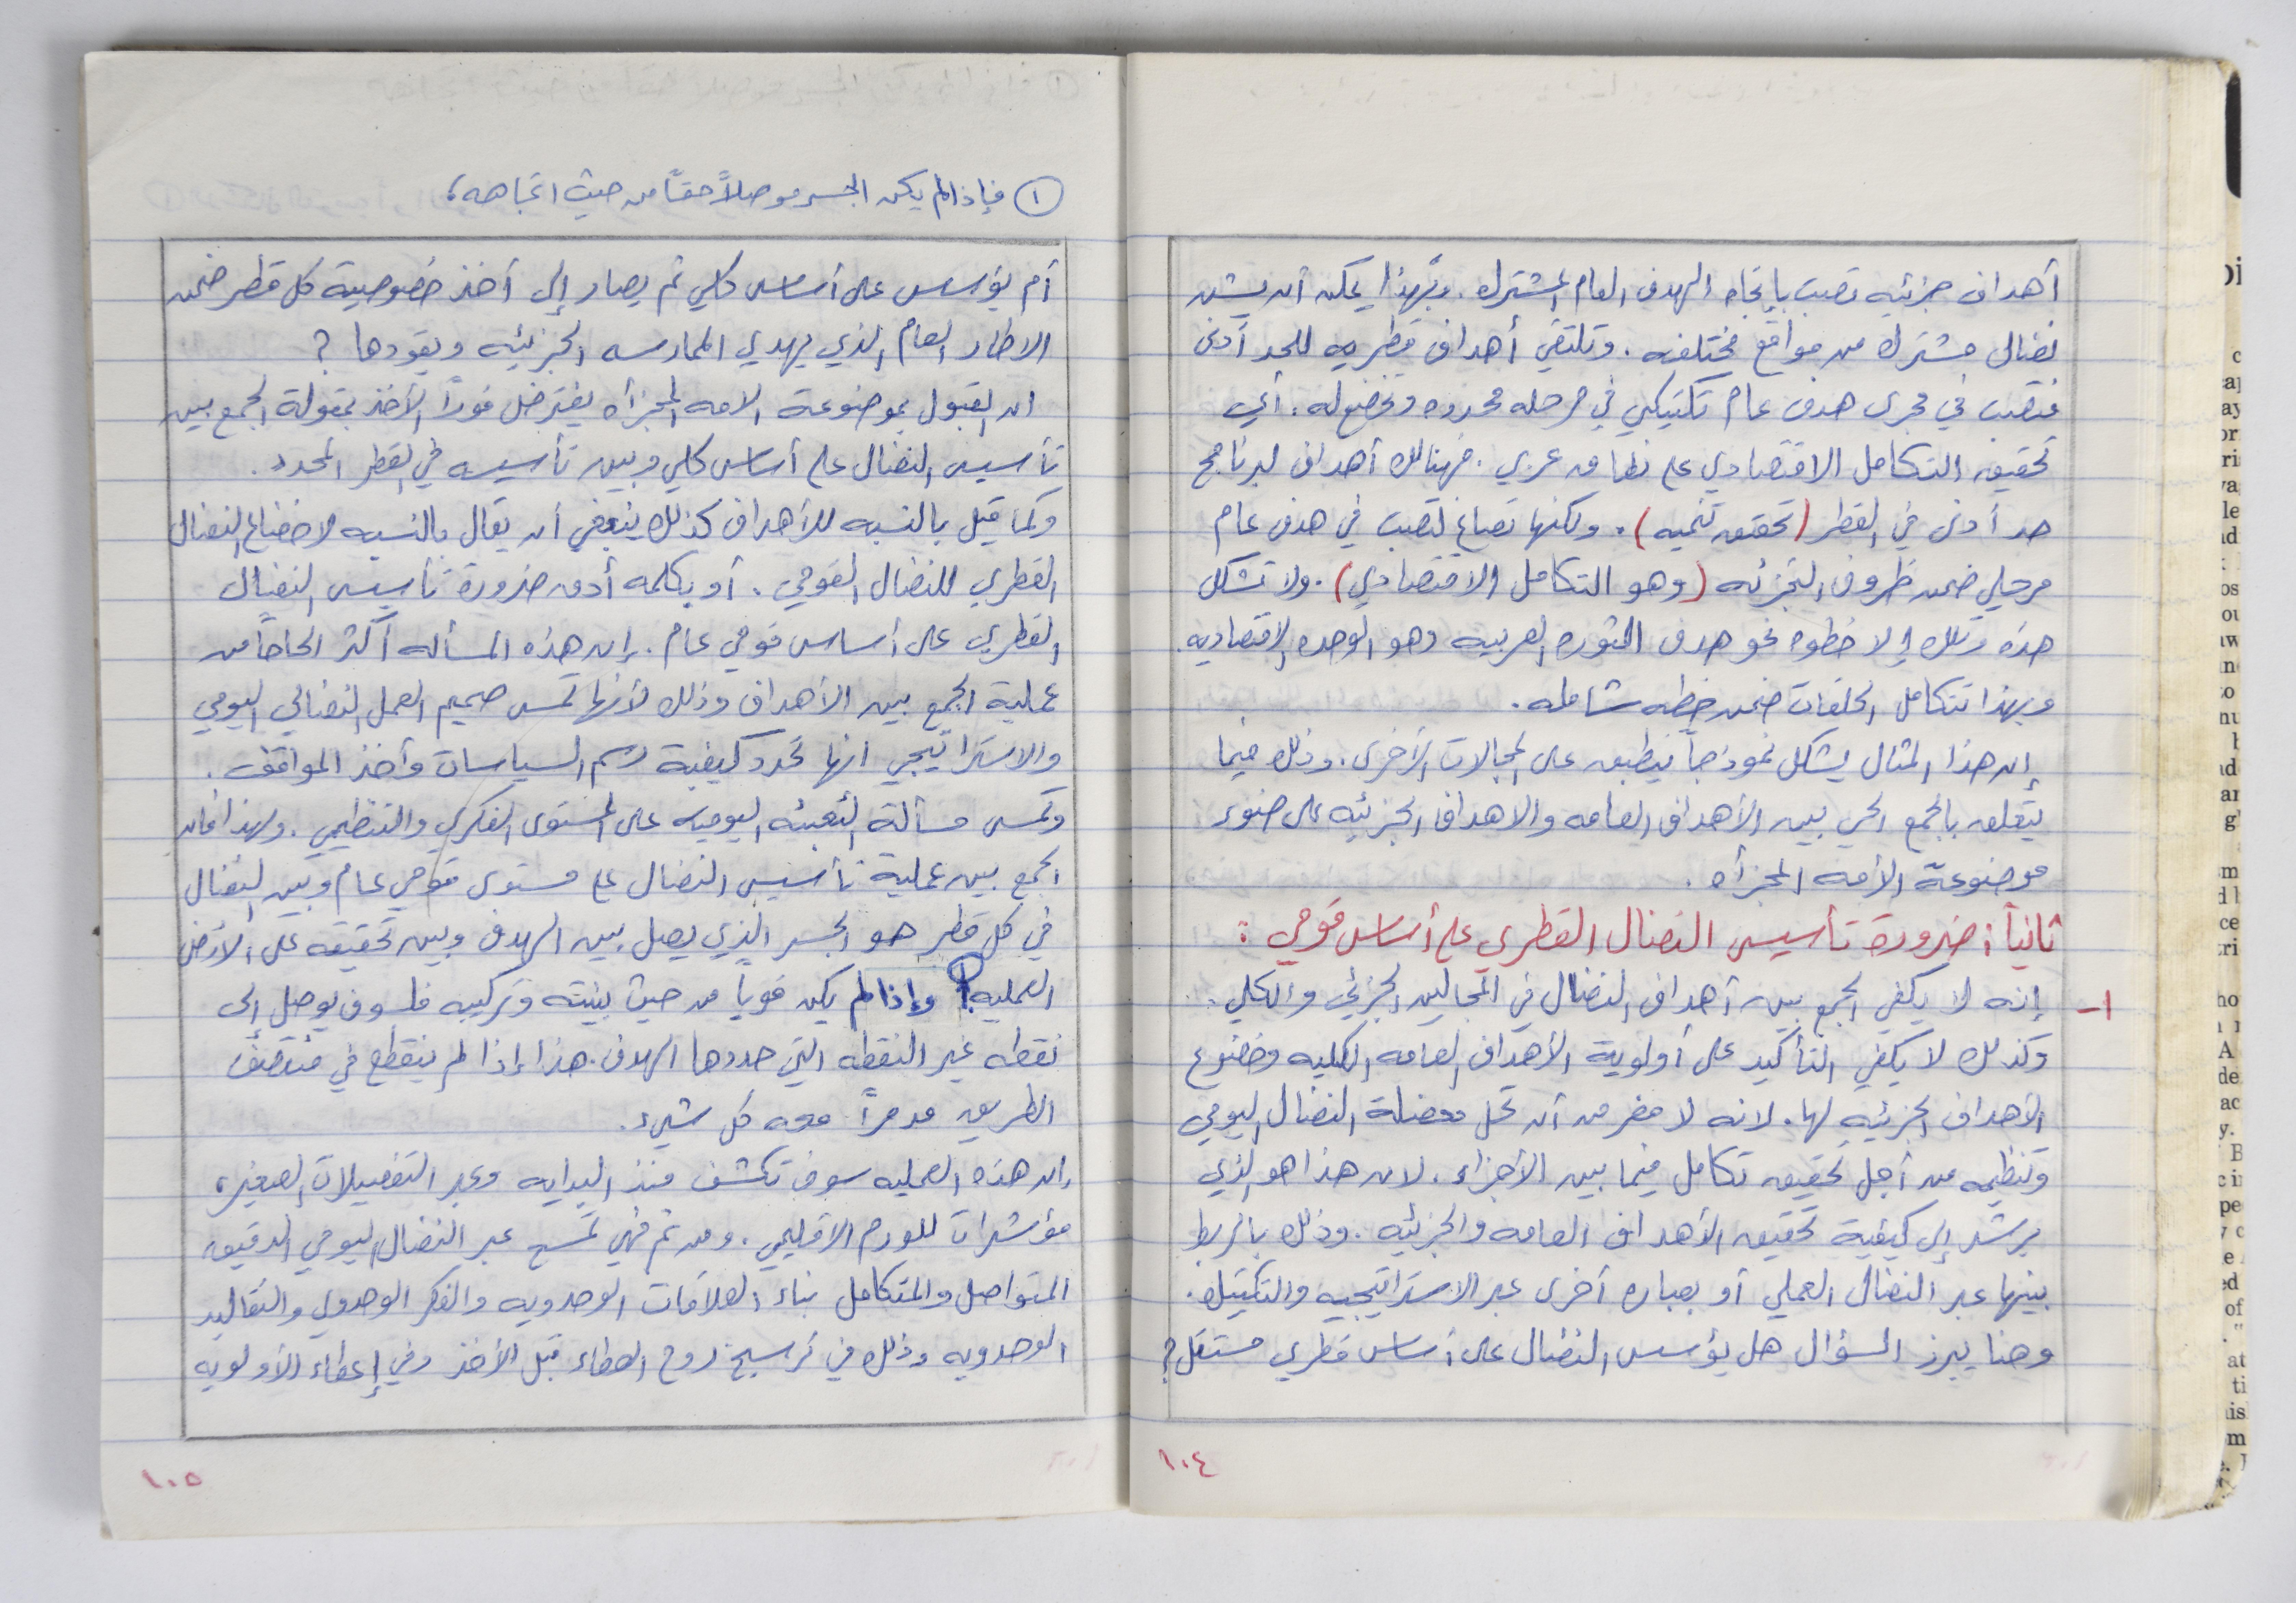 أهداف جزئيه تصب باتجاه الهدف العام المشترك. وبهذا يمكن أن يشن
نضال مشترك من مواقع مختلفه. وتلتقي أهداف قطريه للحد أدنى
فتصب في مجرى هدف عام تكتيكي في مرحله محدوده ومخصوله. أي
تحقيق التكامل الاقتصادي على نطاق عربي. فهنالك أهداف لبرنامج
حد أدنى في القطر (تحقيق تنميه). ولكنها تصاغ لتصب في هدف عام
مرحلي ضمن ظروف التجزئه (وهو التكامل الاقتصادي). ولا تشكل
هذه وتلك إلا خطوه نحو هدف الثوره العربيه وهو الوحده الاقتصاديه.
وبهذا تتكامل الحلقات ضمن خطه شامله.
إن هذا المثال يشكل نموذجاً ينطبق على المجالات الأخرى. وذلك فيما
يتعلق بالجمع الحي بين الأهداف العامه والاهداف الجزئيه على ضوء
موضوعة الأمه المجزأه.
ثانياً: ضرورة تأسيس النضال القطري على أساس قومي :
١- إنه لا يكفي الجمع بين أهداف النضال في المجالين الجزئي والكلي.
وكذلك لا يكفي التأكيد على أولوية الأهداف العامه الكليه وخضوع
الأهداف الجزئيه لها. لانه لا مفر من أن تحل معضلة النضال اليومي
وتنظيمه من أجل تحقيق تكامل فيما بين الأجزاء. لان هذا هو الذي
يرشد إلى كيفية تحقيق الأهداف العامه والجزئيه. وذلك بالربط
بينها عبر النضال العملي أو بعباره أخرى عبر الاستراتيجيه والتكتيك.
وهنا يبرز السؤال هل يؤسس النضال على أساس قطري مستقل؟
١٠٤
① فإذا لم يكن الجسر موصلاً حقاً من حيث اتجاهه،
أم يؤسس على أساس كلي ثم يصار إلى أخذ خصوصية كل قطر ضمن
الاطار العام الذي يهدي الممارسه الجزئيه ويقودها ؟
ان القبول بموضوعة الامه المجزأه يفترض فوراً الأخذ بمقولة الجمع بين
تأسيس النضال على أساس كلي وبين تأسيسه في القطر المحدد.
وكما قيل بالنسبه للأهداف كذلك ينبغي أن يقال بالنسبه لاخضاع النضال
القطري للنضال القومي. أو بكلمه أدق ضرورة تأسيس النضال
القطري على أساس قومي عام. إن هذه المسأله أكثر الحاحاً من
عملية الجمع بين الأهداف وذلك لأنها تمس صميم العمل النضالي اليومي
والاستراتيجي انها تحدد كيفية رسم السياسات وأخذ المواقف.
وتمس مسألة التعبئه اليوميه على المستوى الفكري والتنظيمي. ولهذا فان
الجمع بين عملية تأسيس النضال على مستوى قومي عام وبين النضال
في كل قطر هو الجسر الذي يصل بين الهدف وبين تحقيقه على الارض
العمليه. ① وإذا لم يكن قوياً من حيث بنيته وتركيبه فلسوف يوصل إلى
نقطه غير النقطه التي حددها الهدف. هذا إذا لم ينقطع في منتصف
الطريق مدمراً معه كل شيء.
إن هذه العمليه سوف تكشف منذ البدايه وعبر التفصيلات الصغيره
مؤشرات للورم الاقليمي. ومن ثم فهي تمسح عبر النضال اليومي الدقيق
المتواصل والمتكامل بناء العلاقات الوحدويه والفكر الوحدوي والتقاليد
الوحدويه وذلك في ترسيخ روح العطاء قبل الأخذ وفي إعطاء الأولويه
١٠٥